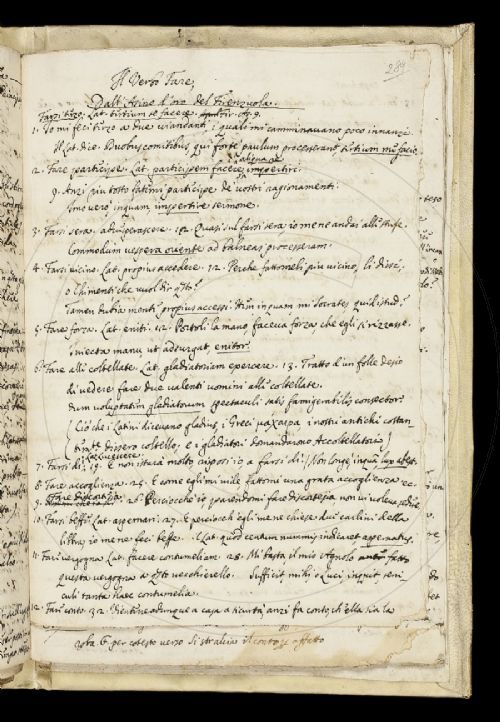 289
Il Verbo Fare,
Dall'Asino d'oro del Firenzuola.
Farsi terzo. Lat. tertium se facere. 9.
1. Io mi feci terzo a due viandanti, i quali mi camminavano poco innanzi.
Il Lat. dice. Duobus comitibus, qui forte paulum processerant tertium me facio.
2. Fare partecipe. Lat. participem facere, impertiri.
9. Anzi piu tosto fatemi partecipe de' vostri ragionamenti.
Imo vero, inquam, impertite sermone.
3. Farsi sera. advesperascere. 12. Quasi sul farsi sera io me ne andai alle stufe.
Commodum vespera oriente ad balneas processeram.
4. Farsi vicino. Lat. propius accedere. 12. Perche fattomeli piu vicino, li dissi,
o Chimenti che vuol dir q.sto?
tamen dubia mente propius accessi. Hem inquam mi Socrates quid istud?
5. Fare forza. Lat. eniti. 12. Portoli la mano, faceva forza, che egli si rizzasse.
Iniecta manu ut adsurgat, enitor.
6. Fare alle coltellate. Lat. gladiatoriam exercere. 13. Tratto d'un folle desio
di vedere fare due valenti uomini alle coltellate.
dum voluptatem gladiatorum spectaculi satis famigerabilis consector.
(Ciò che i Latini dicevano gladius, i Greci μάχαιρα i nostri antichi
dissero coltello, e i gladiatori domandarono Accoltellatori)
7. Farsi dì. 19. E non istarà molto, risposi io, a farsi dì. (Non longe, inquam, lux abest.
8. Fare accoglienza. 25. E come egli mi
fatto mi una grata accoglienza ec.
9. Fare discortesia. 26. Perciocche io, parendomi fare discortesia non vi voleva sedere.
10. Farsi beffe. Lat. aspernari. 27. E perciocch egli me ne chiese due carlini della
libbra, io me ne feci beffe. Lat. quod centum nummis indicaret aspernatus.
11. Far vergogna. Lat. facere contumeliam. 28. Mi basta il mio Agnolo fatto
questa vergogna a q.sto vecchierello. Sufficit mihi o Luci, inquit seni
culi tanta haec contumelia.
12. Far conto. 32. adunque a casa
anzi fa conto, ch'ella sia la
roba. E per cotesto verso si
il conto
affetto